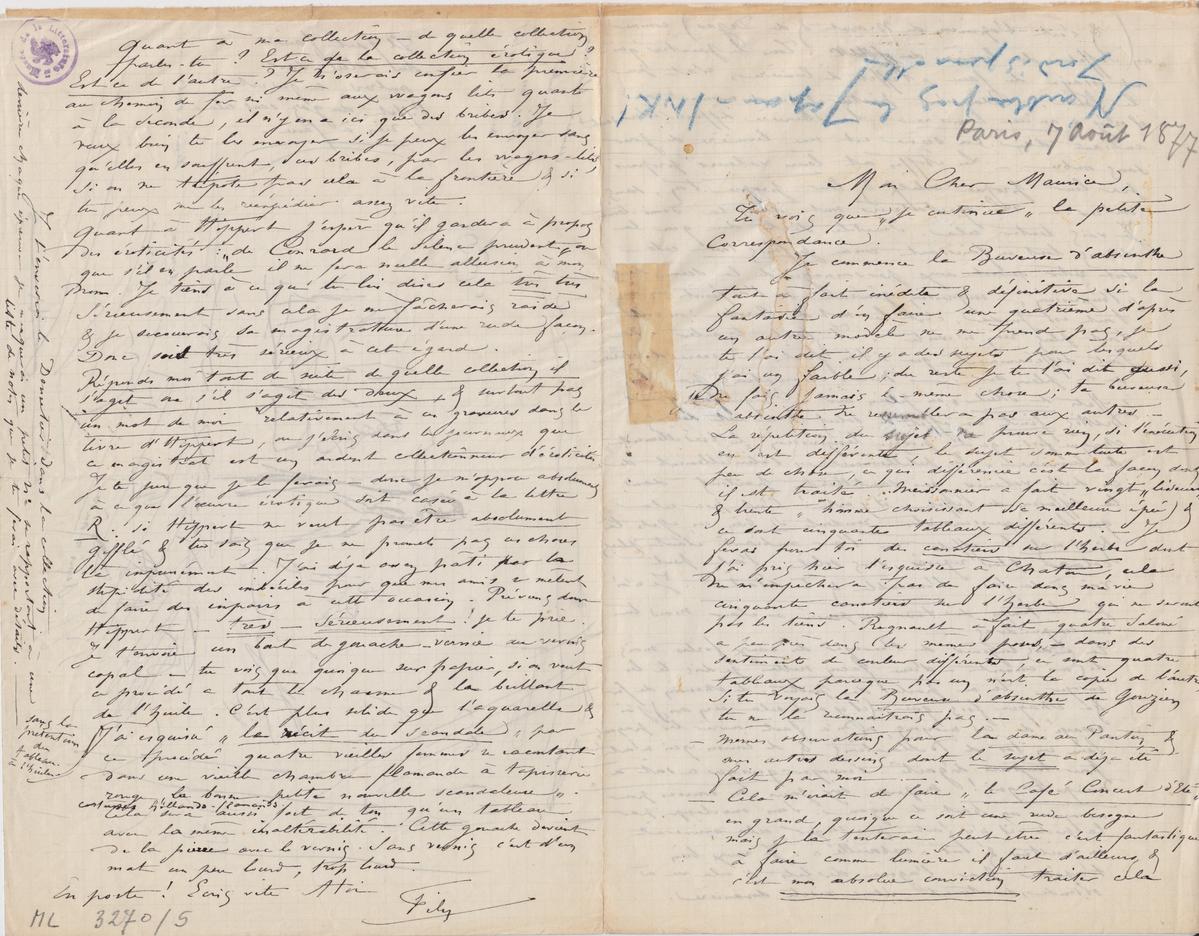 N'oubliez pas le Japon – INK!
Indispensable
Paris, 7 Août 1877
Mon Cher Maurice,
Tu vois que « je continue » la petite
correspondance.
Je commence la Buveuse d'absinthe
tout à fait inédite & définitive si la
fantaisie d'en faire une quatrième d'après
un autre modèle ne me prend pas, je
te l'ai dit, il y a des sujets pour lesquels
j'ai un faible; du reste je te l'ai dit aussi,
fais jamais la même chose; ta buveuse
d'absinthe ne ressemblera pas aux autres. –
La répétition du sujet ne prouve rien, si l'exécution
en est différente, le sujet somme toute est
peu de chose, ce qui différencie c'est la façon dont
il est traité. Meissonnier a fait vingt « liseurs »
& trente « homme choisissant sa meilleure épée » &
ce sont cinquante tableaux différents. Je
ferai pour toi des canotiers sur l'herbe dont
j'ai pris hier l'esquisse à Chatou, cela
ne m'empêchera pas de faire dans ma vie
cinquante canotiers sur l'herbe qui ne seront
pas les tiens. Regnault a fait quatre Salomé
à peu près dans les mêmes poses, – dans des
sentiments de couleur différents, ce sont quatre
tableaux parceque pas un n'est la copie de l'autre
Si tu voyais la Buveuse d'absinthe de Gouzien
tu ne la reconnaitrais pas. –
– Mêmes observations pour la dame au Pantin &
mes autres dessins dont le sujet a déjà été
fait par moi
– Cela m'irait de faire « le Café Concert d'Eté »
en grand, quoique ce soit une rude besogne
mais je la tenterai peut être c'est fantastique
à faire comme lumière il faut d'ailleurs, &
c'est mon absolue conviction traiter cela
Quant à ma collection – de quelle collection
parles-tu? Est-ce de la collection érotique?
Est-ce de l'autre? Je n'oserais confier la première
au chemin de fer ni même aux wagons lits quant
à la seconde, il n'y en a ici que des bribes. Je
veux bien te les envoyer si je peux les envoyer sans
qu'elles en souffrent, ces bribes, par les wagons-lits,
si on ne tripote pas cela à la frontière & si
tu peux me les réexpédier assez vite.
Quant à Hippert j'espère qu'il gardera à propos
des éroticités: « de Conrard le Silence prudent », ou
que s'il en parle il ne fera nulle allusion à mon
Prom. Je tiens à ce que tu lui dises cela très très
sérieusement sans cela je me fâcherais raide
& je secouerais sa magistrature d'une rude façon.
Donc sois très sérieux à cet égard.
Réponds moi tout de suite de quelle collection il
s'agit ou s'il s'agit des deux & surtout pas
un mot de moi relativement à ces gravures dans le
livre d'Hippert, ou j'écris dans les journaux que
ce magistrat est un ardent collectionneur d'éroticités
Je te jure que je le ferais – donc je m'oppose absolument
à ce que l'œuvre érotique soit casée à la lettre
R. si Hippert ne veut pas être absolument
gifflé & tu sais que je ne promets pas ces choses
là impunément. J'ai déjà assez pâti par la
stupidité des imbéciles pour que mes amis se mêlent
de faire des impairs à cette occasion. Préviens donc
Hippert – très – sérieusement! je te prie.
Je t'envoie un bout de gouache – vernie au vernis
copal – tu vois que quoique sur papier, si on veut
ce procédé a tout le charme & la brillant
de l'huile. C'est plus solide que l'aquarelle &
J'ai esquissé « le récit du Scandale » par
ce procédé quatre vieilles femmes se racontant
dans une vieille chambre flamande à tapisserie
rouge la bonne petite nouvelle scandaleuse ».
costumes hollando-flamands
Cela sera aussi fort de ton qu'un tableau
avec la même inaltérabilité. Cette gouache devient
de la pierre avec le vernis. Sans vernis c'est d'un
mat un peu lourd, trop lourd.
En poste! Ecris vite A toi
Fély
sans la
prétention
du
tableau
à l'huile
Je t'enverrai le Demontier dans la collection.
dernière
liste de noms que je te ferai avec détails.
Musée de la Littérature
ML 3270/5